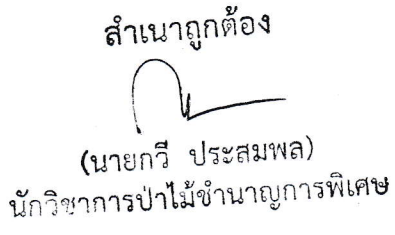 สำเนาถูกต้อง
(นายกวี ประสมพล)
นักวิชาการป่าไม้ชำนาญการพิเศษ